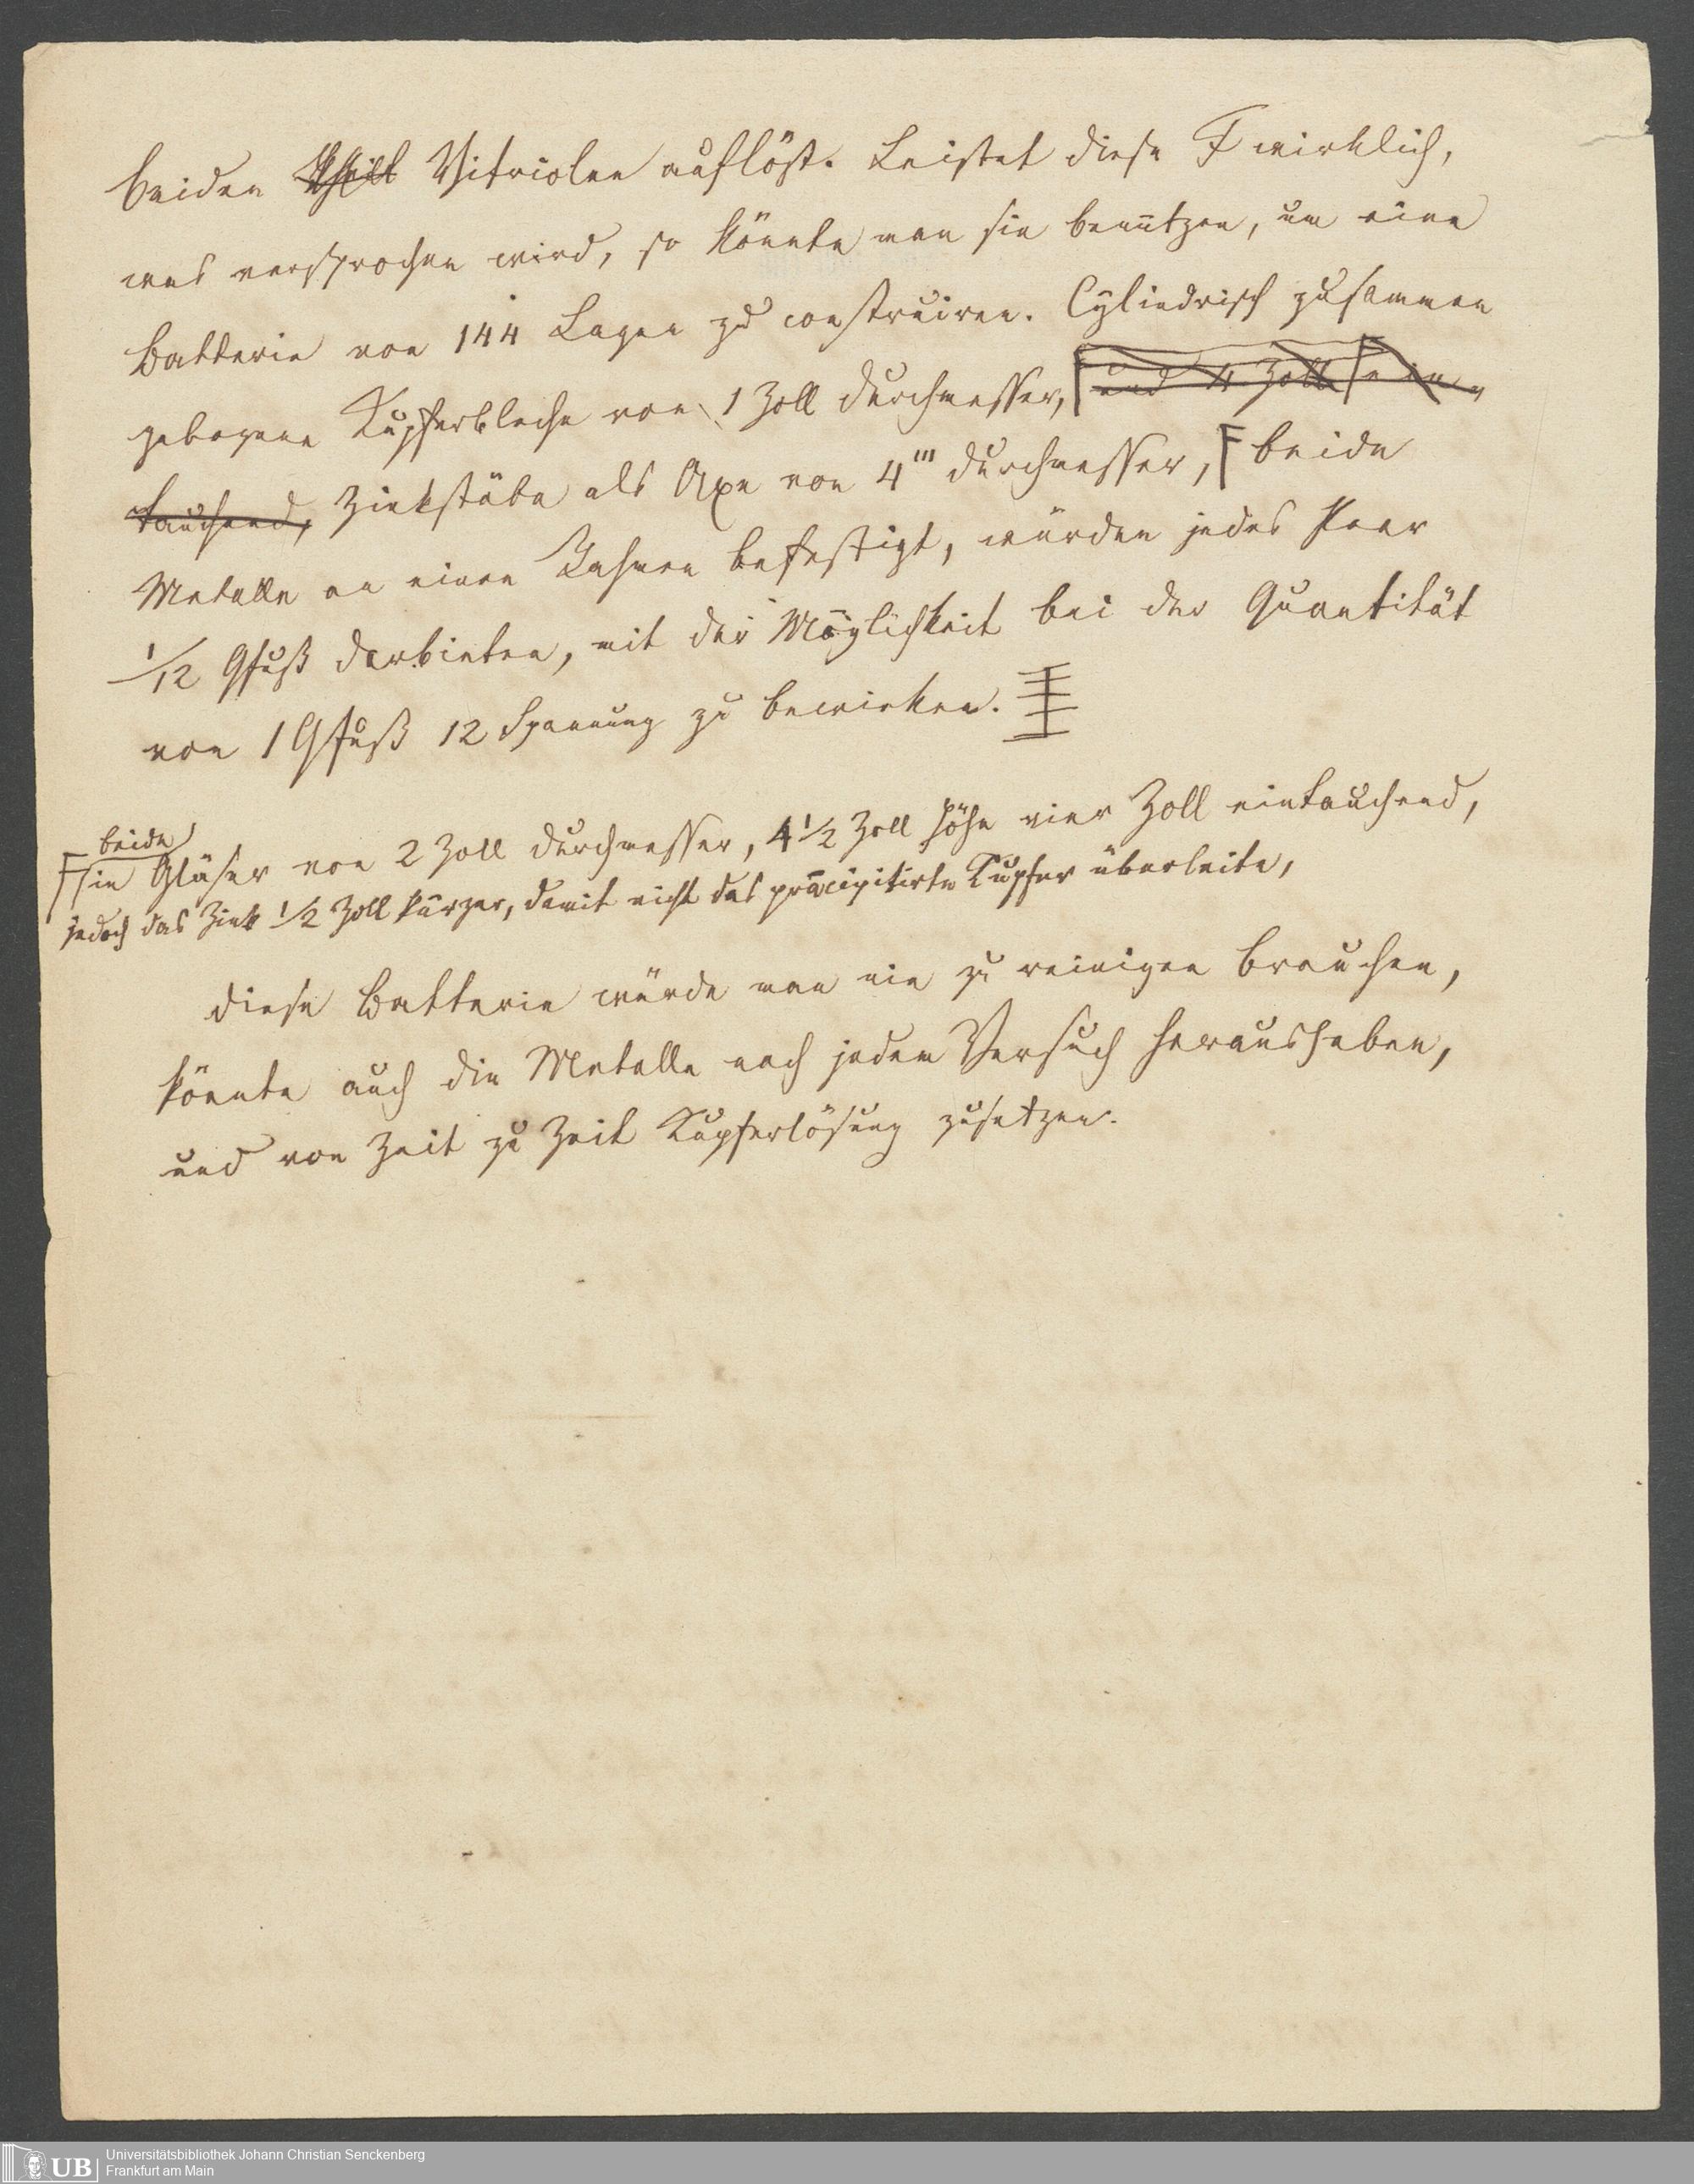 beiden Vitriolen auflöst. Leistet diese F wirklich,
was versprochen wird, so könnte man sie benutzen, um eine
Batterie von 144 Lagen zu construiren. Cylindrisch zusammen
gebogene Kupferbleche von 1 Zoll Durchmesser, und 4 Zoll ein
tauchend, Zinkstäbe als Axe von 4''' Durchmesser, F beide
Metalle an einen Rahmen befestigt, würden jedes Paar
1/12 Qfuß darbieten, mit der Möglichkeit bei der Quantität
von 1 Qfuß 12 Spannung zu bewirken.
beide
F in Gläser von 2 Zoll Durchmesser, 4 1/2 Zoll Höhe vier Zoll eintauchend,
jedoch das Zink 1/2 Zoll kürzer, damit nicht das präcipitirte Kupfer überleite,
Diese Batterie würde man nie zu reinigen brauchen,
könnte auch die Metalle nach jedem Versuch herausheben,
und von Zeit zu Zeit Kupferlösung zusetzen.
UB
Universitätsbibliothek Johann Christian Senckenberg
Frankfurt am Main